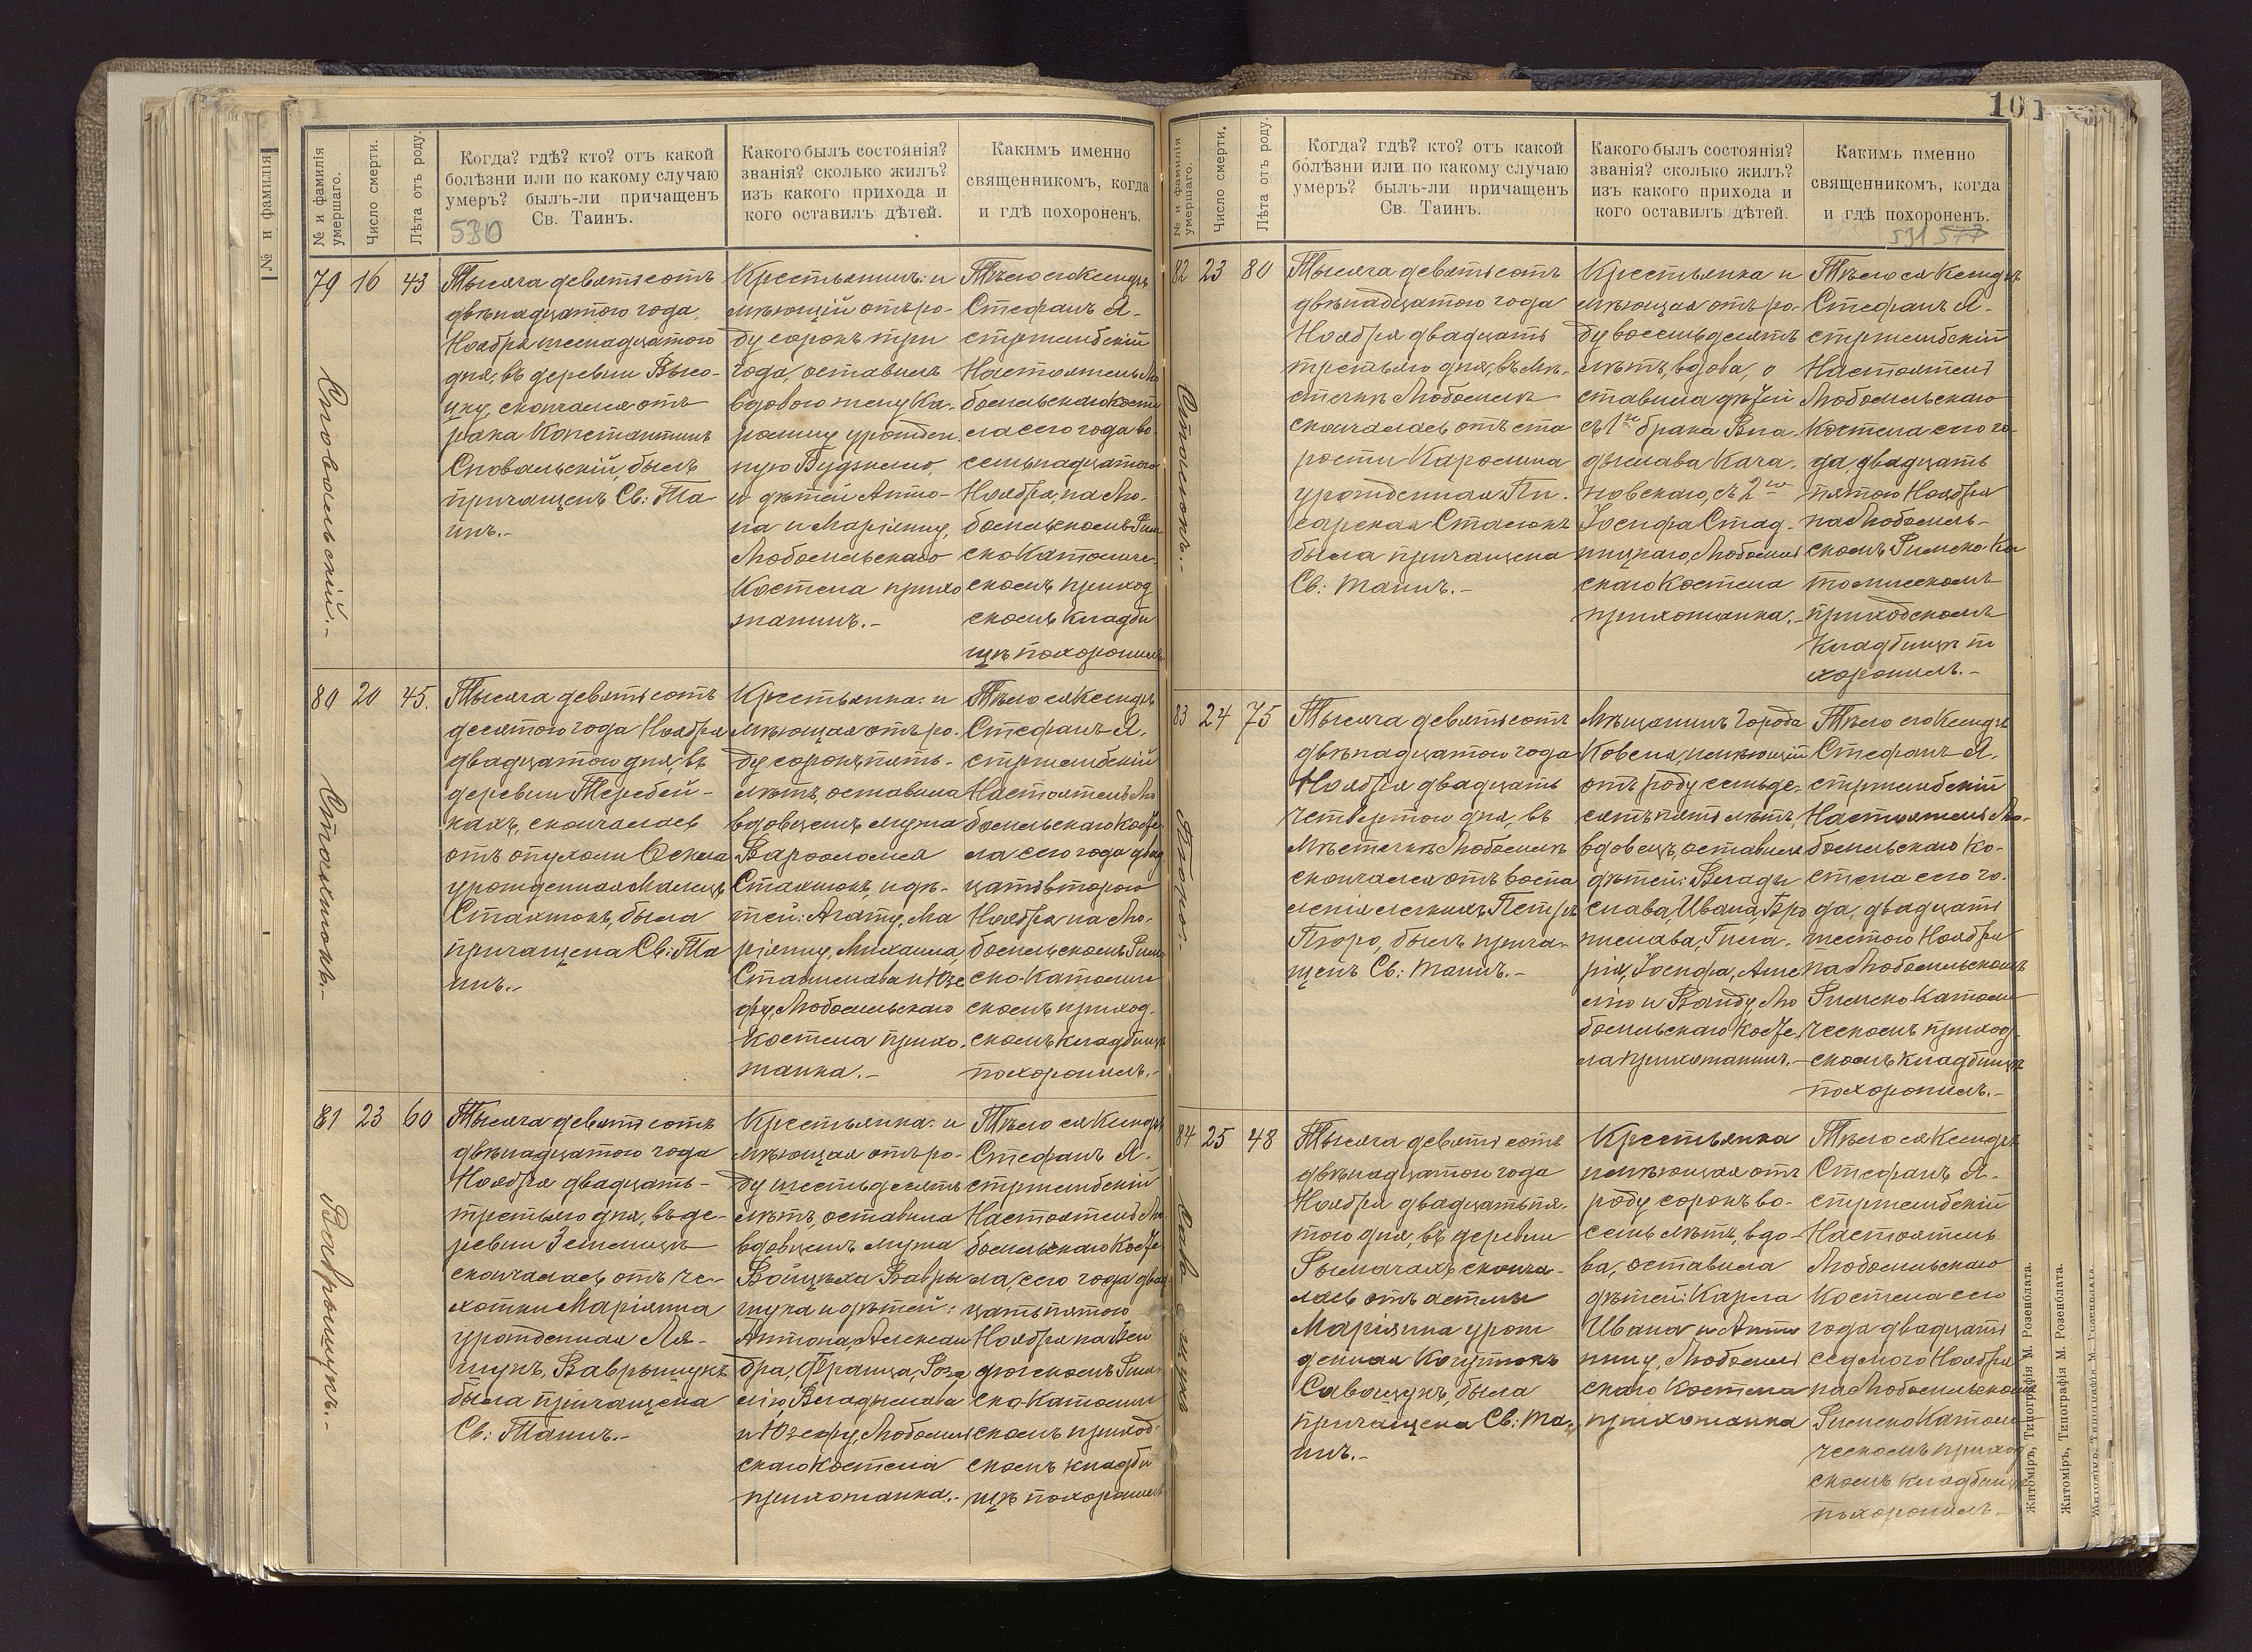 № и фамилія
№ и фамилія
умершаго.
Число смерти.
Лѣта отъ роду.
Когда? гдѣ? кто? отъ какой
болѣзни или по какому случаю
умеръ? былъ-ли причащенъ
Св. Таинъ.
530
Какого былъ состоянія?
званія? сколько жилъ?
изъ какого прихода и
кого оставилъ дѣтей.
Какимъ именно
священникомъ, когда
и гдѣ похороненъ.
79
16
43
Тысяча девятьсотъ
двѣнадцатого года,
Ноября шеснадцатого
дня, въ деревни Высо-
цку, скончался отъ
рака Константинъ
былъ
причащенъ Св: Та
инъ.-
Крестьянинъ: и
мѣющій отъ ро-
ду сорокъ три
года, оставилъ
вдовою жену Ка-
ролину урожден.
ную
и дѣтей Анто-
на и Маріянну,
Любомльскаго
Костела прихо
жанинъ.-
Тѣло его Ксендзъ
Стефанъ Я-
стржембскій
Настоятель Лю
бомльскаго Косте
ла сего года во-
семьнадцатого
Ноября, на Лю-
бомльскомъ Рим-
ско Католиче-
скомъ приход
скомъ кладби
щѣ похоронилъ
80
20
45.
Стаянюкъ.-
Тысяча девятьсотъ
десятого года Ноября
двадцатого дня, въ
деревни Теребей-
кахъ, скончалась
отъ опухоли
урожденная
была
причащена Св: Та
инъ.-
Крестьянка: и
мѣющая отъ ро-
ду сорокъ пять-
лѣтъ, оставила
вдовцемъ мужа
Варфоломея
и дѣ-
тей: Агату, Ма
ріянну, Михаила,
Станислава и Юзе
фу, Любомльскаго
Костела прихо-
жанка.-
Тѣло ея Ксендзъ
Стефанъ Я-
стржембскій
Настоятель Лю
бомльскаго Косте
ла сего года двад
цать второго
Ноября на Лю-
бомльскомъ Рим
ско-Католиче
скомъ приход-
скомъ кладбищѣ
похоронилъ.-
81
23
60
Вавринщукъ.-
Тысяча девятьсотъ
двѣнадцатого года
Ноября двадцать-
третьяго дня, въ де-
ревни Земмицѣ
скончалась отъ ча-
хотки Маріянна
урожденная Ля-
щукъ,
была причащена
Св: Таинъ.-
Крестьянка: и
мѣющая отъ ро-
ду шестьдесятъ
лѣтъ, оставила
вдовцемъ мужа
Войцѣха Ваври
щука и дѣтей:
Антона, Алексан
дра, Франца, Роза
лію, Владислава
и Юзефу, Любомль
скаго Костела
прихожанка.-
Тѣло ея Ксендзъ
Стефанъ Я-
стржембскій
Настоятель Лю
бомльскаго Косте
ла, сего года двад
цать пятого
Ноября на
Рим-
ско Католиче
скомъ приход-
скомъ кладби
щѣ похоронилъ
101
№ и фамилія
умершаго.
Число смерти.
Лѣта отъ роду.
Когда? гдѣ? кто? отъ какой
болѣзни или по какому случаю
умеръ? былъ-ли причащенъ
Св. Таинъ.
Какого былъ состоянія?
званія? сколько жилъ?
изъ какого прихода и
кого оставилъ дѣтей.
Какимъ именно
священникомъ, когда
и гдѣ похороненъ.
531 577
82
23
80
Тысяча девятьсотъ
двѣнадцатого года
Ноября двадцать
третьяго дня, въ мѣ-
стечкѣ Любомлѣ
скончалась отъ ста
рости Каролина
урожденная Пи-
сарская
была причащена
Св: Таинъ.-
Крестьянка и
мѣющая отъ ро-
ду восемьдесятъ
лѣтъ, вдова, о
ставила дѣтей
съ 1го брака Вла-
дыслава Кача-
новскаго, съ 2го
Іосифа Стад-
ницкаго, Любомль
скаго Костела
прихожанка.-
Тѣло ея Ксендзъ
Стефанъ Я-
стржембскій
Настоятель
Любомльскаго
Костела сего го-
да, двадцать
пятого Ноября
на Любомль-
скомъ Римско-Ка
толическомъ
приходскомъ
кладбищѣ по
хоронилъ.-
83
24
75
Пюро.
Тысяча девятьсотъ
двѣнадцатого года
Ноября двадцать
четвертого дня, въ
Мѣстечкѣ Любомлѣ
скончался отъ воспа
ленія легкихъ Петръ
Пюро, былъ прича-
щенъ Св: Таинъ.-
Мѣщанинъ города
Ковеля, имѣющій
отъ роду семьде-
сятъ пять лѣтъ,
вдовецъ, оставилъ
дѣтей: Влады
слава, Ивана, Бро
нислава, Гила-
рія, Іосифа, Аме
лію и Ванду, Лю
бомльскаго Косте-
ла прихожанинъ.-
Тѣло его Ксендзъ
Стефанъ Я-
стржембскій
Настоятель Лю-
бомльскаго Ко-
стела сего го-
да, двадцать
шестого Ноября
на Любомльскомъ
Римско Католи
ческомъ приход-
скомъ кладбищѣ
похоронилъ.-
84
25
48
Тысяча девятьсотъ
двѣнадцатого года
Ноября двадцать пя-
того дня, въ деревни
Рымачахъ сконча-
лась отъ астмы
Маріянна урож
денная
Савощукъ, была
причащена Св: Та-
инъ.-
Крестьянка
имѣющая отъ
роду сорокъ во-
семь лѣтъ, вдо-
ва, оставила
дѣтей: Карла
Ивана и Анто
нину, Любомль
скаго Костела
прихожанка
Тѣло ея Ксендзъ
Стефанъ Я-
стржембскій
Настоятель
Любомльскаго
Костела сего
года двадцать
седмого Ноября
на Любомльскомъ
Римско Католи
ческомъ приход
скомъ кладбищѣ
похоронилъ.-
Житоміръ, Типографія М. Розенблата.
Житоміръ, Типографія М. Розенблата.